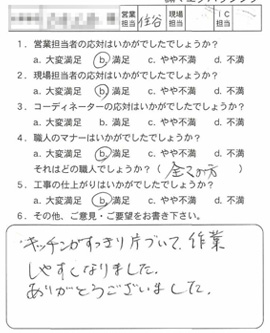 営業担当 住谷 現場担当 IC担当
1．営業担当者の応対はいかがでしたでしょうか？
a. 大変満足 b. 満足 c. やや不満 d. 不満
2．現場担当者の応対はいかがでしたでしょうか？
a. 大変満足 b. 満足 c. やや不満 d. 不満
3．コーディネーターの応対はいかがでしたでしょうか？
a. 大変満足 b. 満足 c. やや不満 d. 不満
4．職人のマナーはいかがでしたでしょうか？
a. 大変満足 b. 満足 c. やや不満 d. 不満
それはどの職人でしょうか？（ 全ての方 ）
5．工事の仕上がりはいかがでしたでしょうか？
a. 大変満足 b. 満足 c. やや不満 d. 不満
6．その他、ご意見・ご要望をお書き下さい。
・キッチンがすっきり片づいて、作業
しやすくなりました。
ありがとうございました。